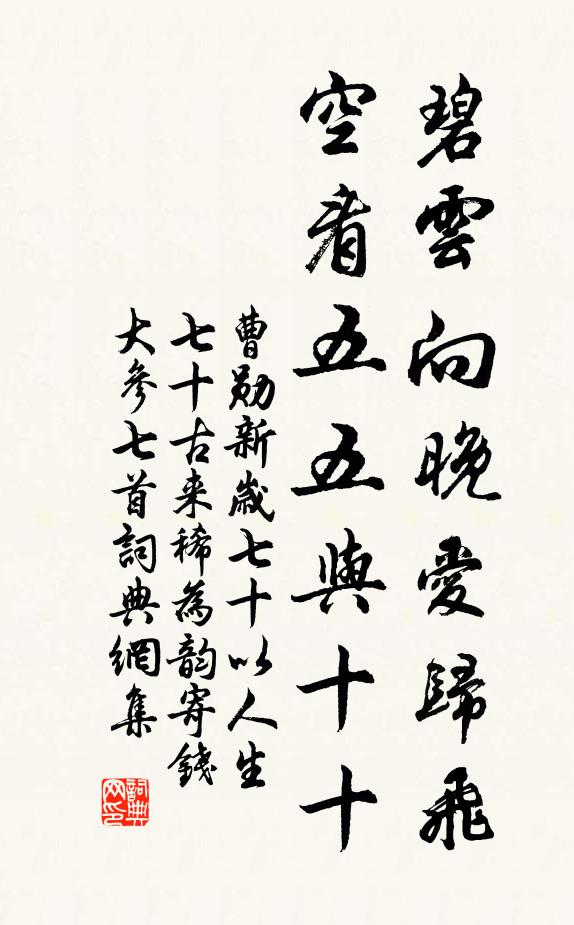 碧雲向晚愛歸飛
空看五五與十十
曹勛新歲七十以人生
七十古来稀為韵寄錢
大參七首詞典網集
詞典网印